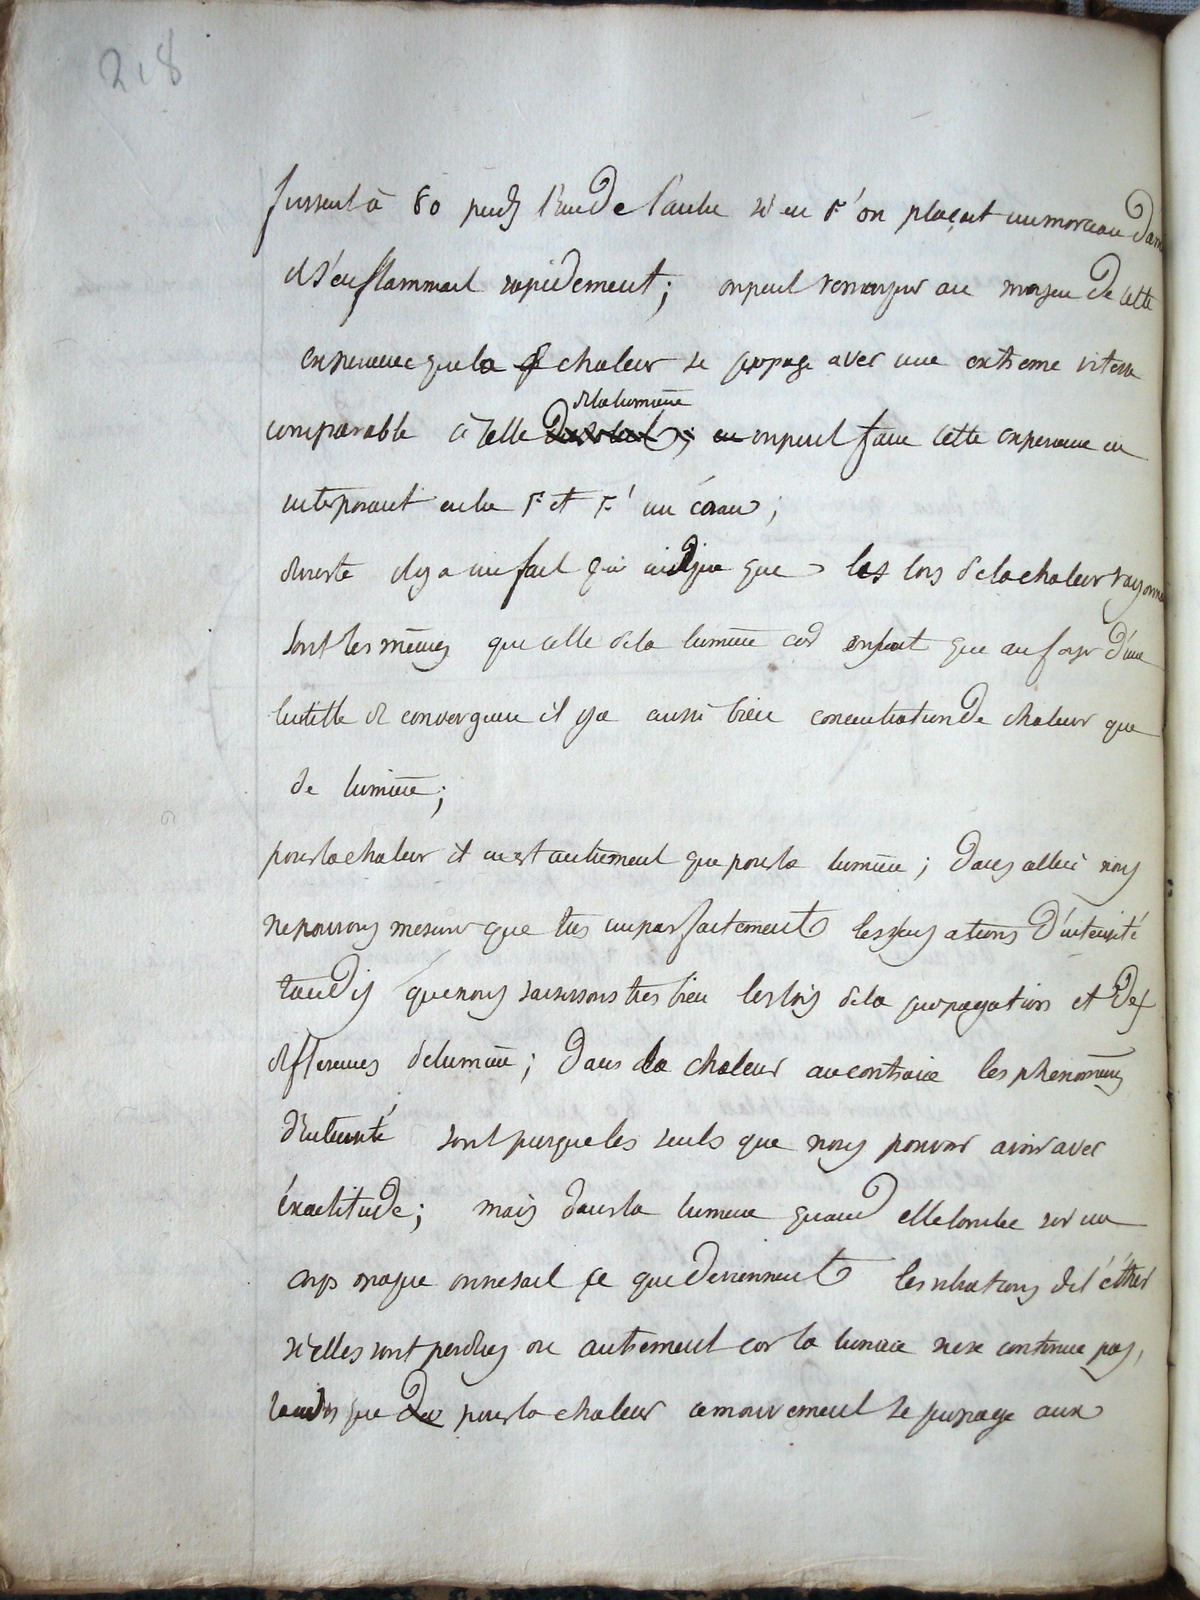 218
fussent à 80 pieds l'un de l'autre si en F' on plaçait un morceau d'am
il s'enflammait rapidement; on peut remarquer au moyen de cette
experience que la chaleur se propage avec une extreme vitesse
de la lumière
comparable à celle ; en on peut faire cette experience en
interposant entre F et F' un écran;
du reste il y a un fait qui indique que les lois de la chaleur rayonna
sont les mêmes que celle de la lumière car on sait que au foyer d'une
lentille de convergence il y a aussi bien concentration de chaleur que
de lumière;
pour la chaleur il en est autrement que pour la lumière; dans celle ci nous
ne pouvons mesurer que très imparfaitement les d'intensité
tandis que nous saisissons très bien les lois de la propagation et des
différences de lumière; dans la chaleur au contraire les phénomènes
d'intensité sont presque les seuls que nous pouvons avoir avec
éxactitude; mais dans la lumière quand elle tombe sur un
corps opaque on ne sait ce que deviennent les vibrations de l'éther
si elles sont perdues ou autrement car la lumière ne se continue pas,
tandis que pour la chaleur ce mouvement se propage aux